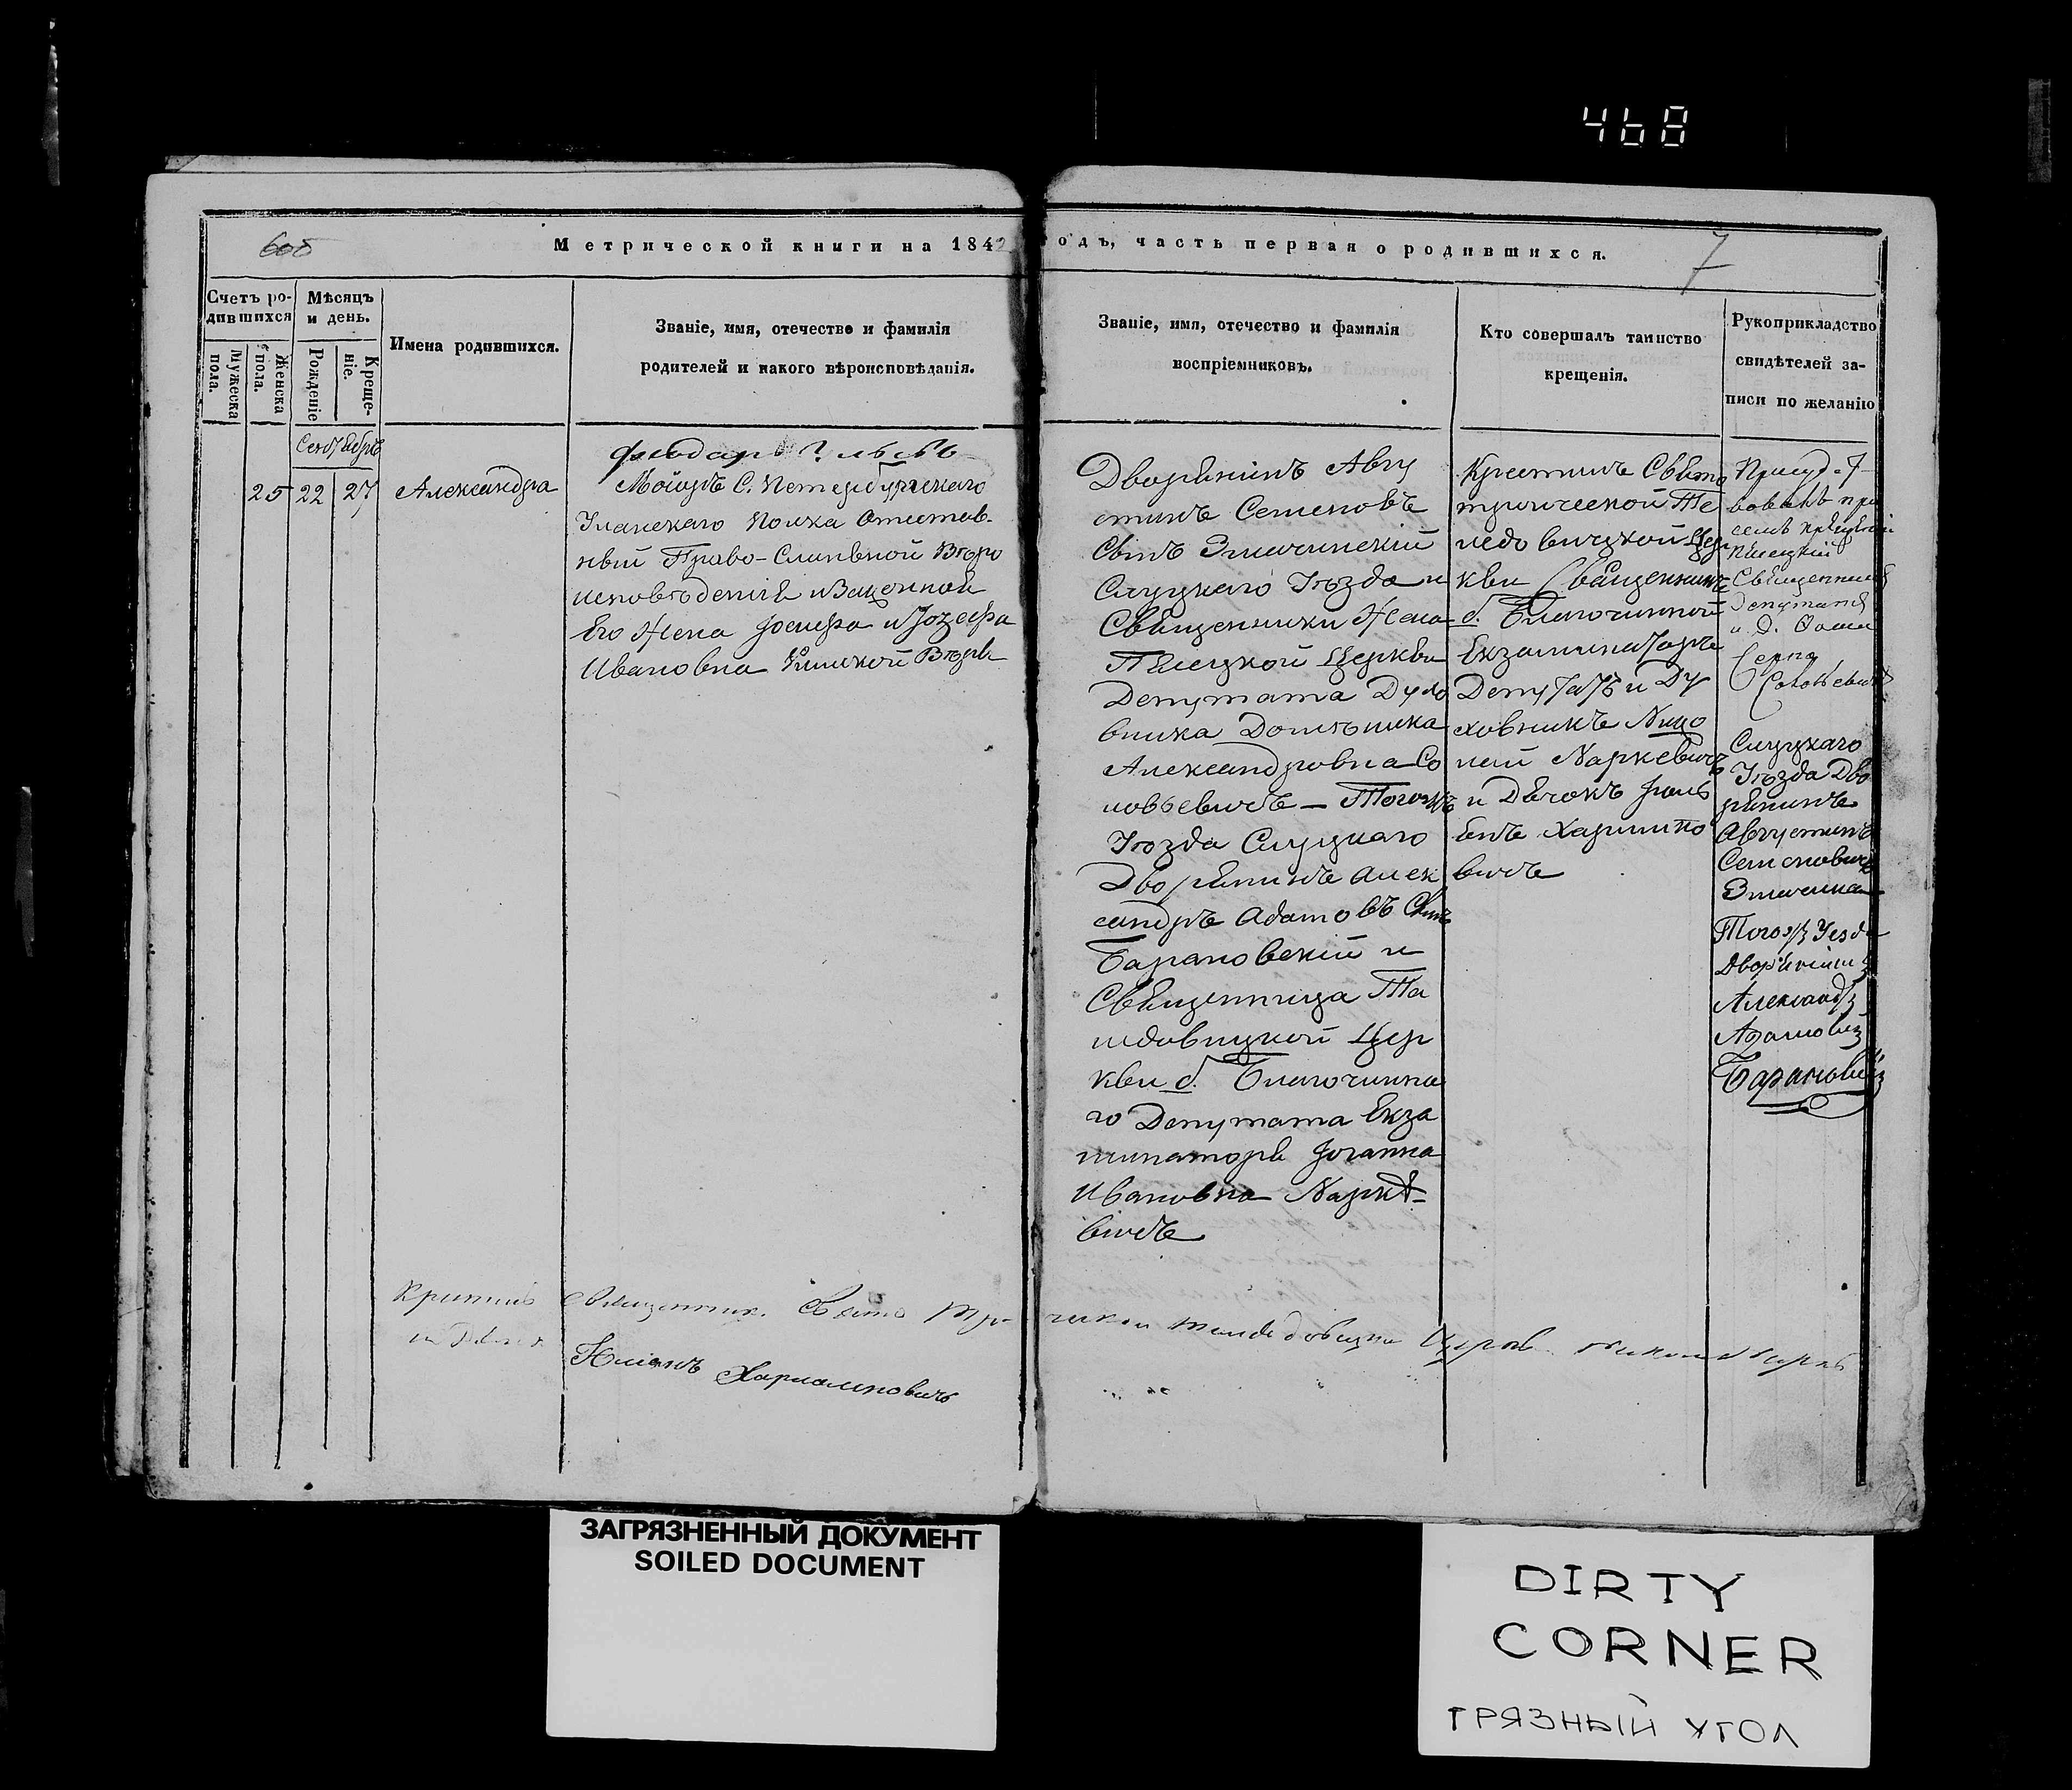 468
Метрической книги на 1842
одъ, часть первая о родившихся.
7
Счетъ ро-
дившихся
Мужеска
пола.
Женска
пола.
Мѣсяцъ
и день.
Рожденіе
Креще-
ніе.
Имена родившихся.
Званіе, имя, отечество и фамилія
родителей и какого вѣроисповѣданія.
Званіе, имя, отечество и фамилія
воспріемниковъ.
Кто совершалъ таинство
крещенія.
Рукоприкладство
свидѣтелей за-
писи по желанію
Сентябрь
25 22 27
Александра
Маіоръ С. Петербургскаго
Уланскаго Полка Отстав-
ный Право-Славной Вѣры
исповѣденія и Законной
Его Жена Иозефа
Ивановна Римской Вѣры
Дворянинъ Авгу
стинъ Семеновъ
Сынъ
Слуцкаго Уѣзда и
Священники Жена
Церкви
Депутата Духо
вника Доминика
Александровна Со
ловьевичъ — Тогожъ
Уѣзда Слуцкаго
Дворянинъ Алек
сандръ Адамовъ Сынъ
Барановскій и
Священница Та
лядовицкой Цер
кви б. Благочинна
го Депутата Екза
минатора Іоанна
Ивановна Нарке-
вичъ
Крестилъ Свято
троической Те
лядовицкой Цер
кви Священникъ
б. Благочинной
Екзаминаторъ
Депутатъ и Ду
ховникъ Нико
лай Наркевичъ
и Дьячокъ Іюль
янъ Харлапо
вичъ
Священникъ
Депутатъ
Соловьевичъ
Слуцкаго
Уѣзда Дво
рянинъ
Августинъ
Семеновичъ
Тогожъ Уезда
Дворянинъ
Александръ
Адамовъ
Барановскій
Священник. Свято
Харлампович
ЗАГРЯЗНЕННЫЙ ДОКУМЕНТ
SOILED DOCUMENT
DIRTY
CORNER
ГРЯЗНЫЙ УГОЛ